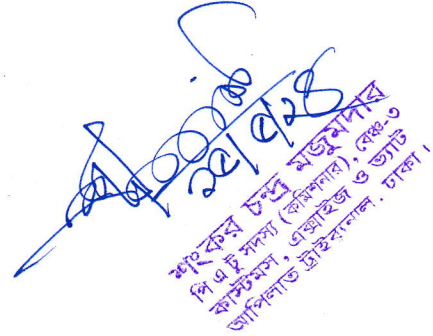 ২৫/৫/২৪
শংকর চন্দ্র মজুমদার
পি এ টু সদস্য (কমিশনার), বেঞ্চ-৩
কাস্টমস, এক্সাইজ ও ভ্যাট
আপিলাত ট্রাইব্যুনাল, ঢাকা।